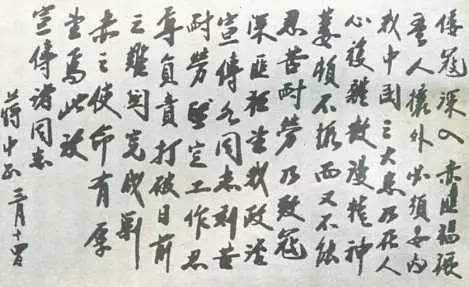 倭寇深入赤匪猖獗
吾人攘外必須安内
我中国之大患乃在人
心複雜散漫精神
萎頓不振而又不能
忍苦耐劳乃致寇
深匪猖望我政治
宣傳各同志刻苦
耐劳堅定工作忍
辱負責打破目前
之難関完成剿
赤之使命有厚
望焉此致
宣傳諸同志
蒋中正 三月十